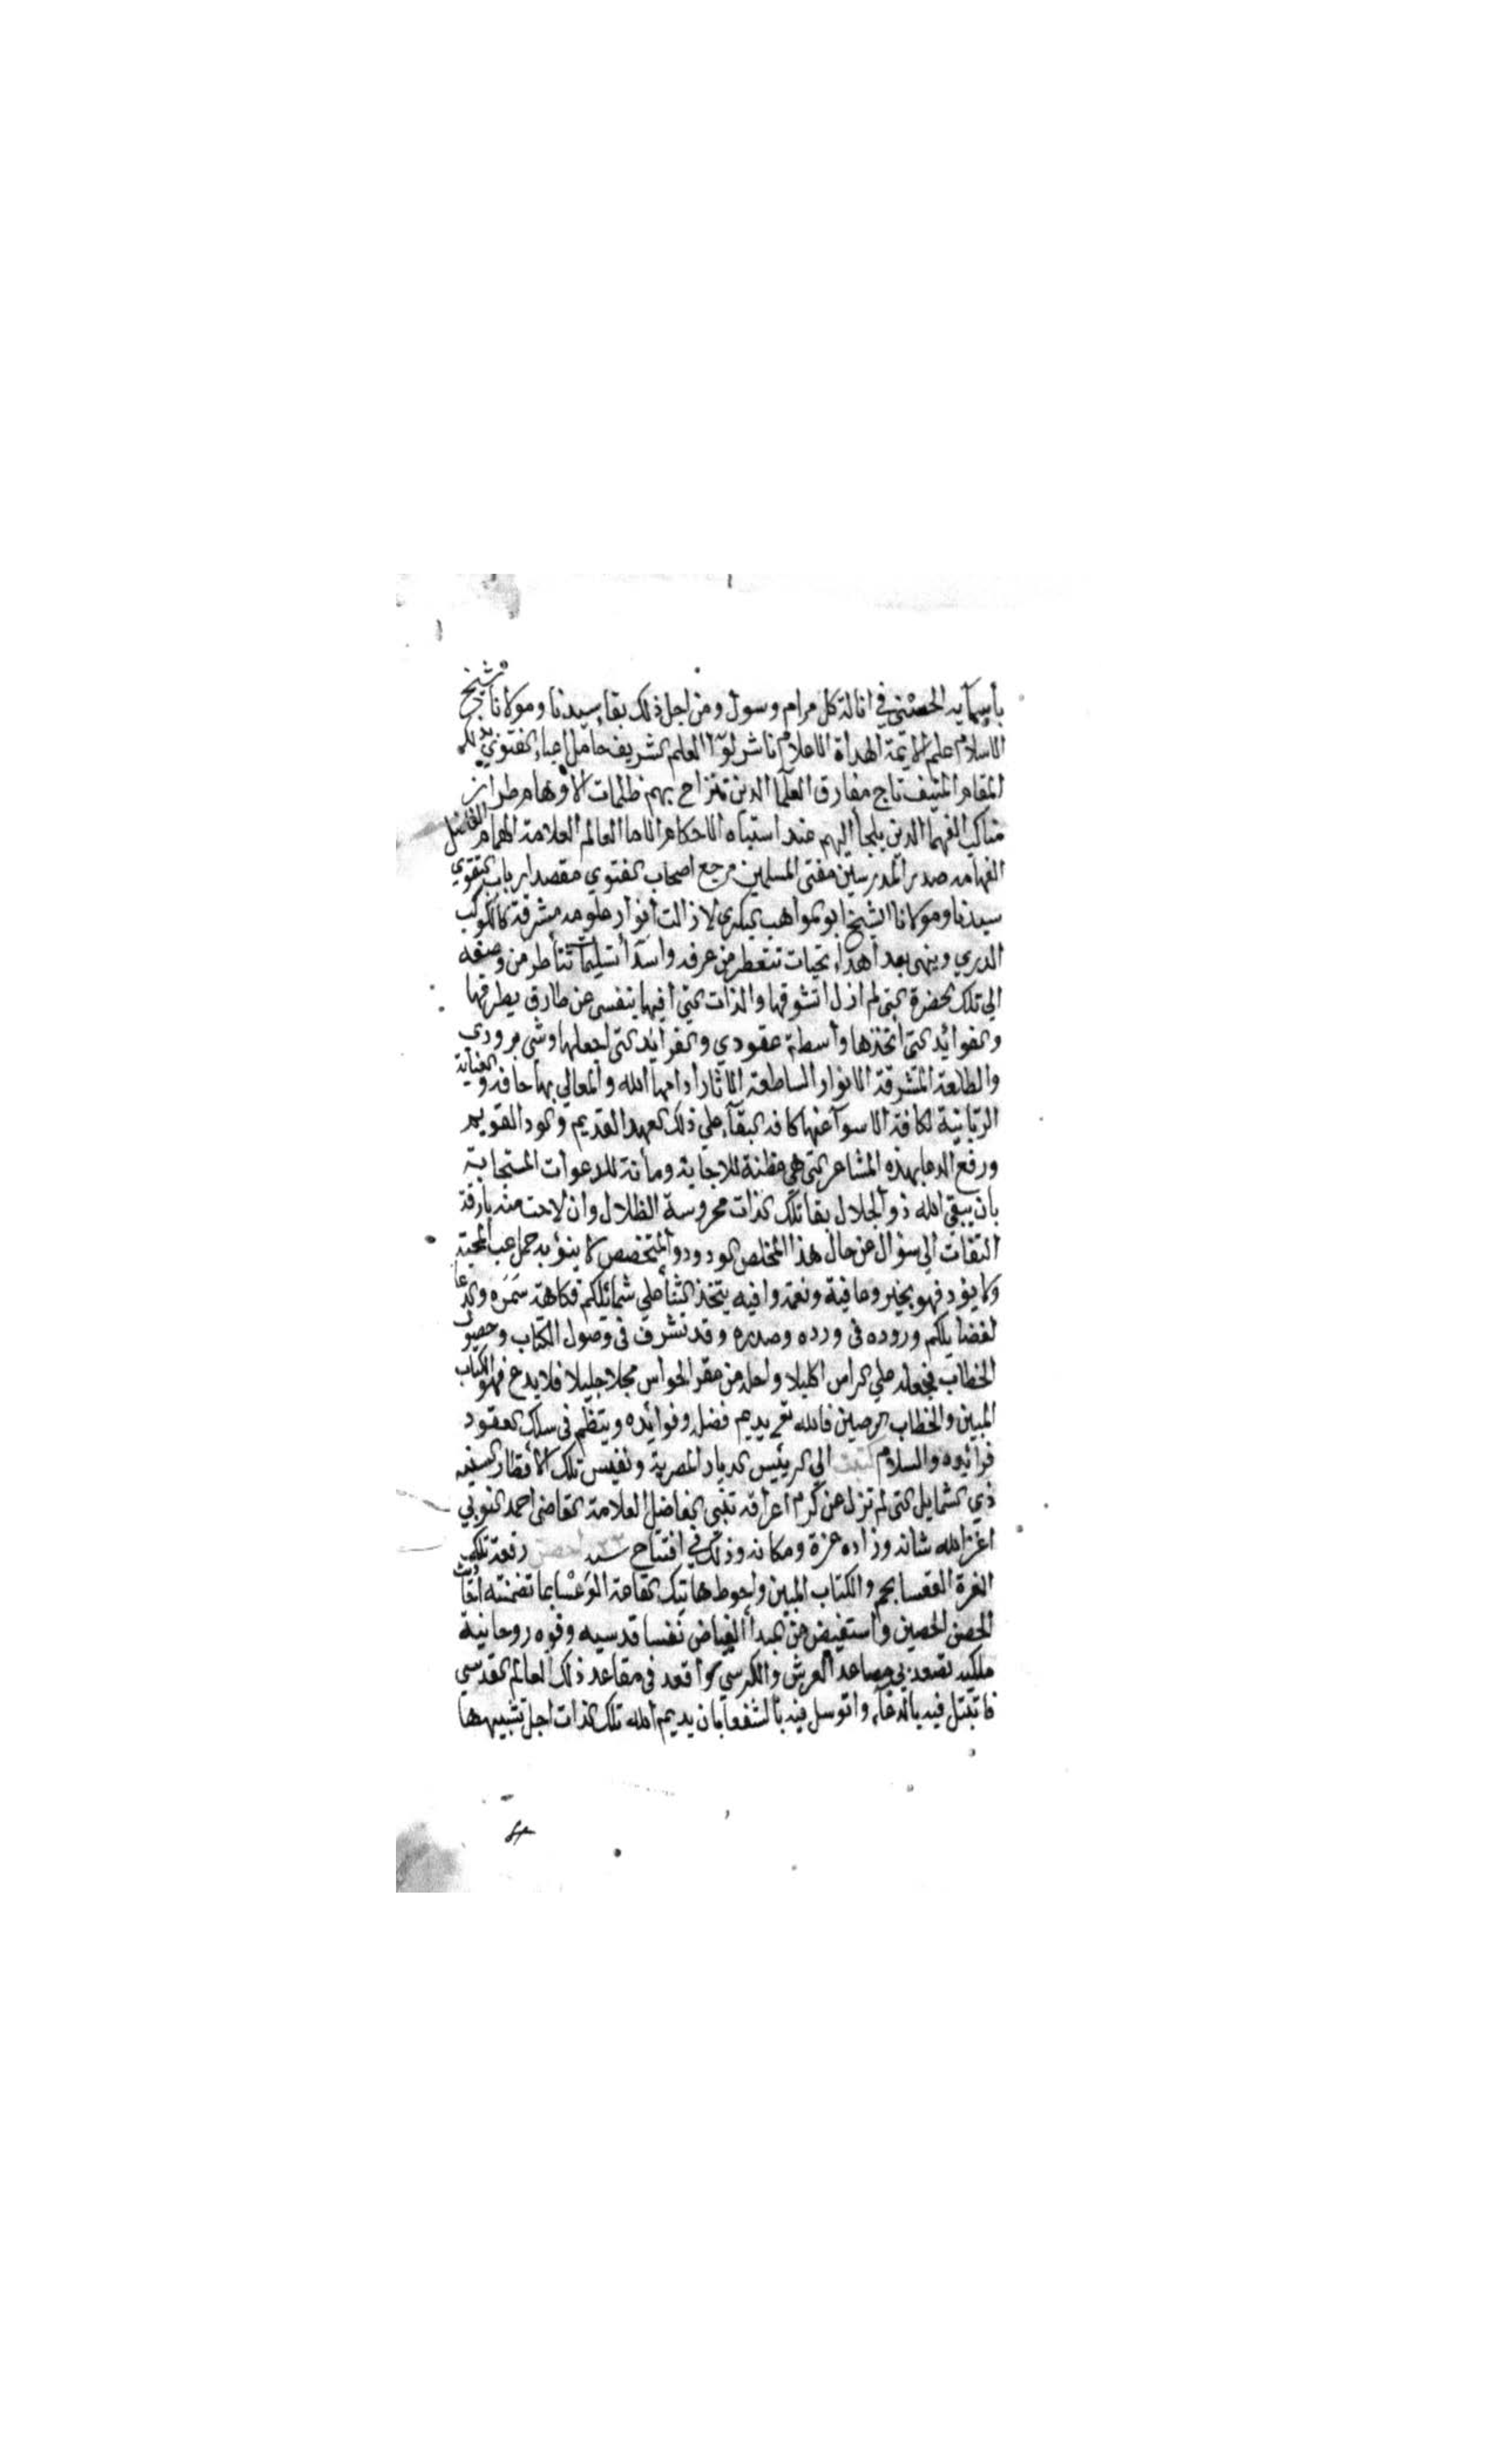 بأسمآيه الحسنى في انالة كل مرام وسول ومن اجل ذلك بقا سيدنا ومولانا شيخ
الاسلام علم الايمة الهداة الاعلام ناشر لوآ العلم الشريف حامل اعباء الفتوي بذلك
المقام المنيف تاج مفارق العلما الذين تنزاح بهم ظلمات الاوهام طراز
مناكب الفهما الذين يلجأ اليهم عند استباه الاحكام الامام العالم العلامة الهمام الفاضل
الفهامه صدر المدرسين مفتى المسلمين مرجع اصحاب الفتوي مقصد ارباب التقوي
سيدنا ومولانا الشيخ ابو المواهب البكري لا زالت أنوار علومه مشرقة كالكوكب
الدري وينهى بعد اهداء تحيات تتعطر من عرفه واسدآ تسليمات من وصفه
الي تلك الحضرة التى لم ازل اتشوقها والذات التي افيها بنفسى عن طارق يطرقها
والفوائد التي اتخذها وأسطة عقودي والفرائد التى اجعلها وشى برودي
والطلعة المشرقة الانوار الساطعة الاثار ادامها الله والمعالي بها حافه والعناية
الربانية لكافة الاسوآ عنها كافه البقآء علي ذلك العهد القديم والود القويم
ورفع الدعا بهذه المشاعر التى هي مظنة للاجابة ومأنة للدعوات المستجابة
بان يبقي الله ذو الجلال بقا تلك الذات محروسة الظلال وان لاحت منه بارقة
التفات الي سؤال عن حال هذا المخلص الودود والمتخصص لا ينؤ به حمل عب المحبة
ولا يؤد فهو بخير وعافية ونعمة وافيه يتخذ الثنأ علي شمائلكم فكاهة سمره والدعا
لفضايلكم وروده فى ورده وصدره وقد تشرف فى وصول الكتاب وحصول
الخطاب فجعله علي الراس اكليلا واحله من مقر الحواس محلا جليلا فلا بدع فهو الكتاب
المبين والخطاب الرصين فالله تع يديم فضله وفوائده وينظم فى سلك العقود
فرائده والسلام الي الرئيس الديار المصرية ونفيس تلك الاقطار
ذي الشمايل التى لم تزل عن كرم اعراقه تنبى الفاضل العلامة القاضى احمد النوبي
اعز الله شانه وزاده عزة ومكانه وذلك في افتتاح سنه رفعة تلك
الغرة القعسا بحم والكتاب المبين واحوط هاتيك القامة الوعسا بما تضمنته
الحصن الحصين وأستفيض من المبدأ الفياض نفسا قدسيه وقوه روحانية
ملكيه تصعد بي مصاعد العرش والكرسي واقعد فى مقاعد ذلك العالم القدسي
فاتبتل فيه بالدعآء واتوسل فيه بالشفعا بان يديم الله تلك الذات اجل تشبيهها